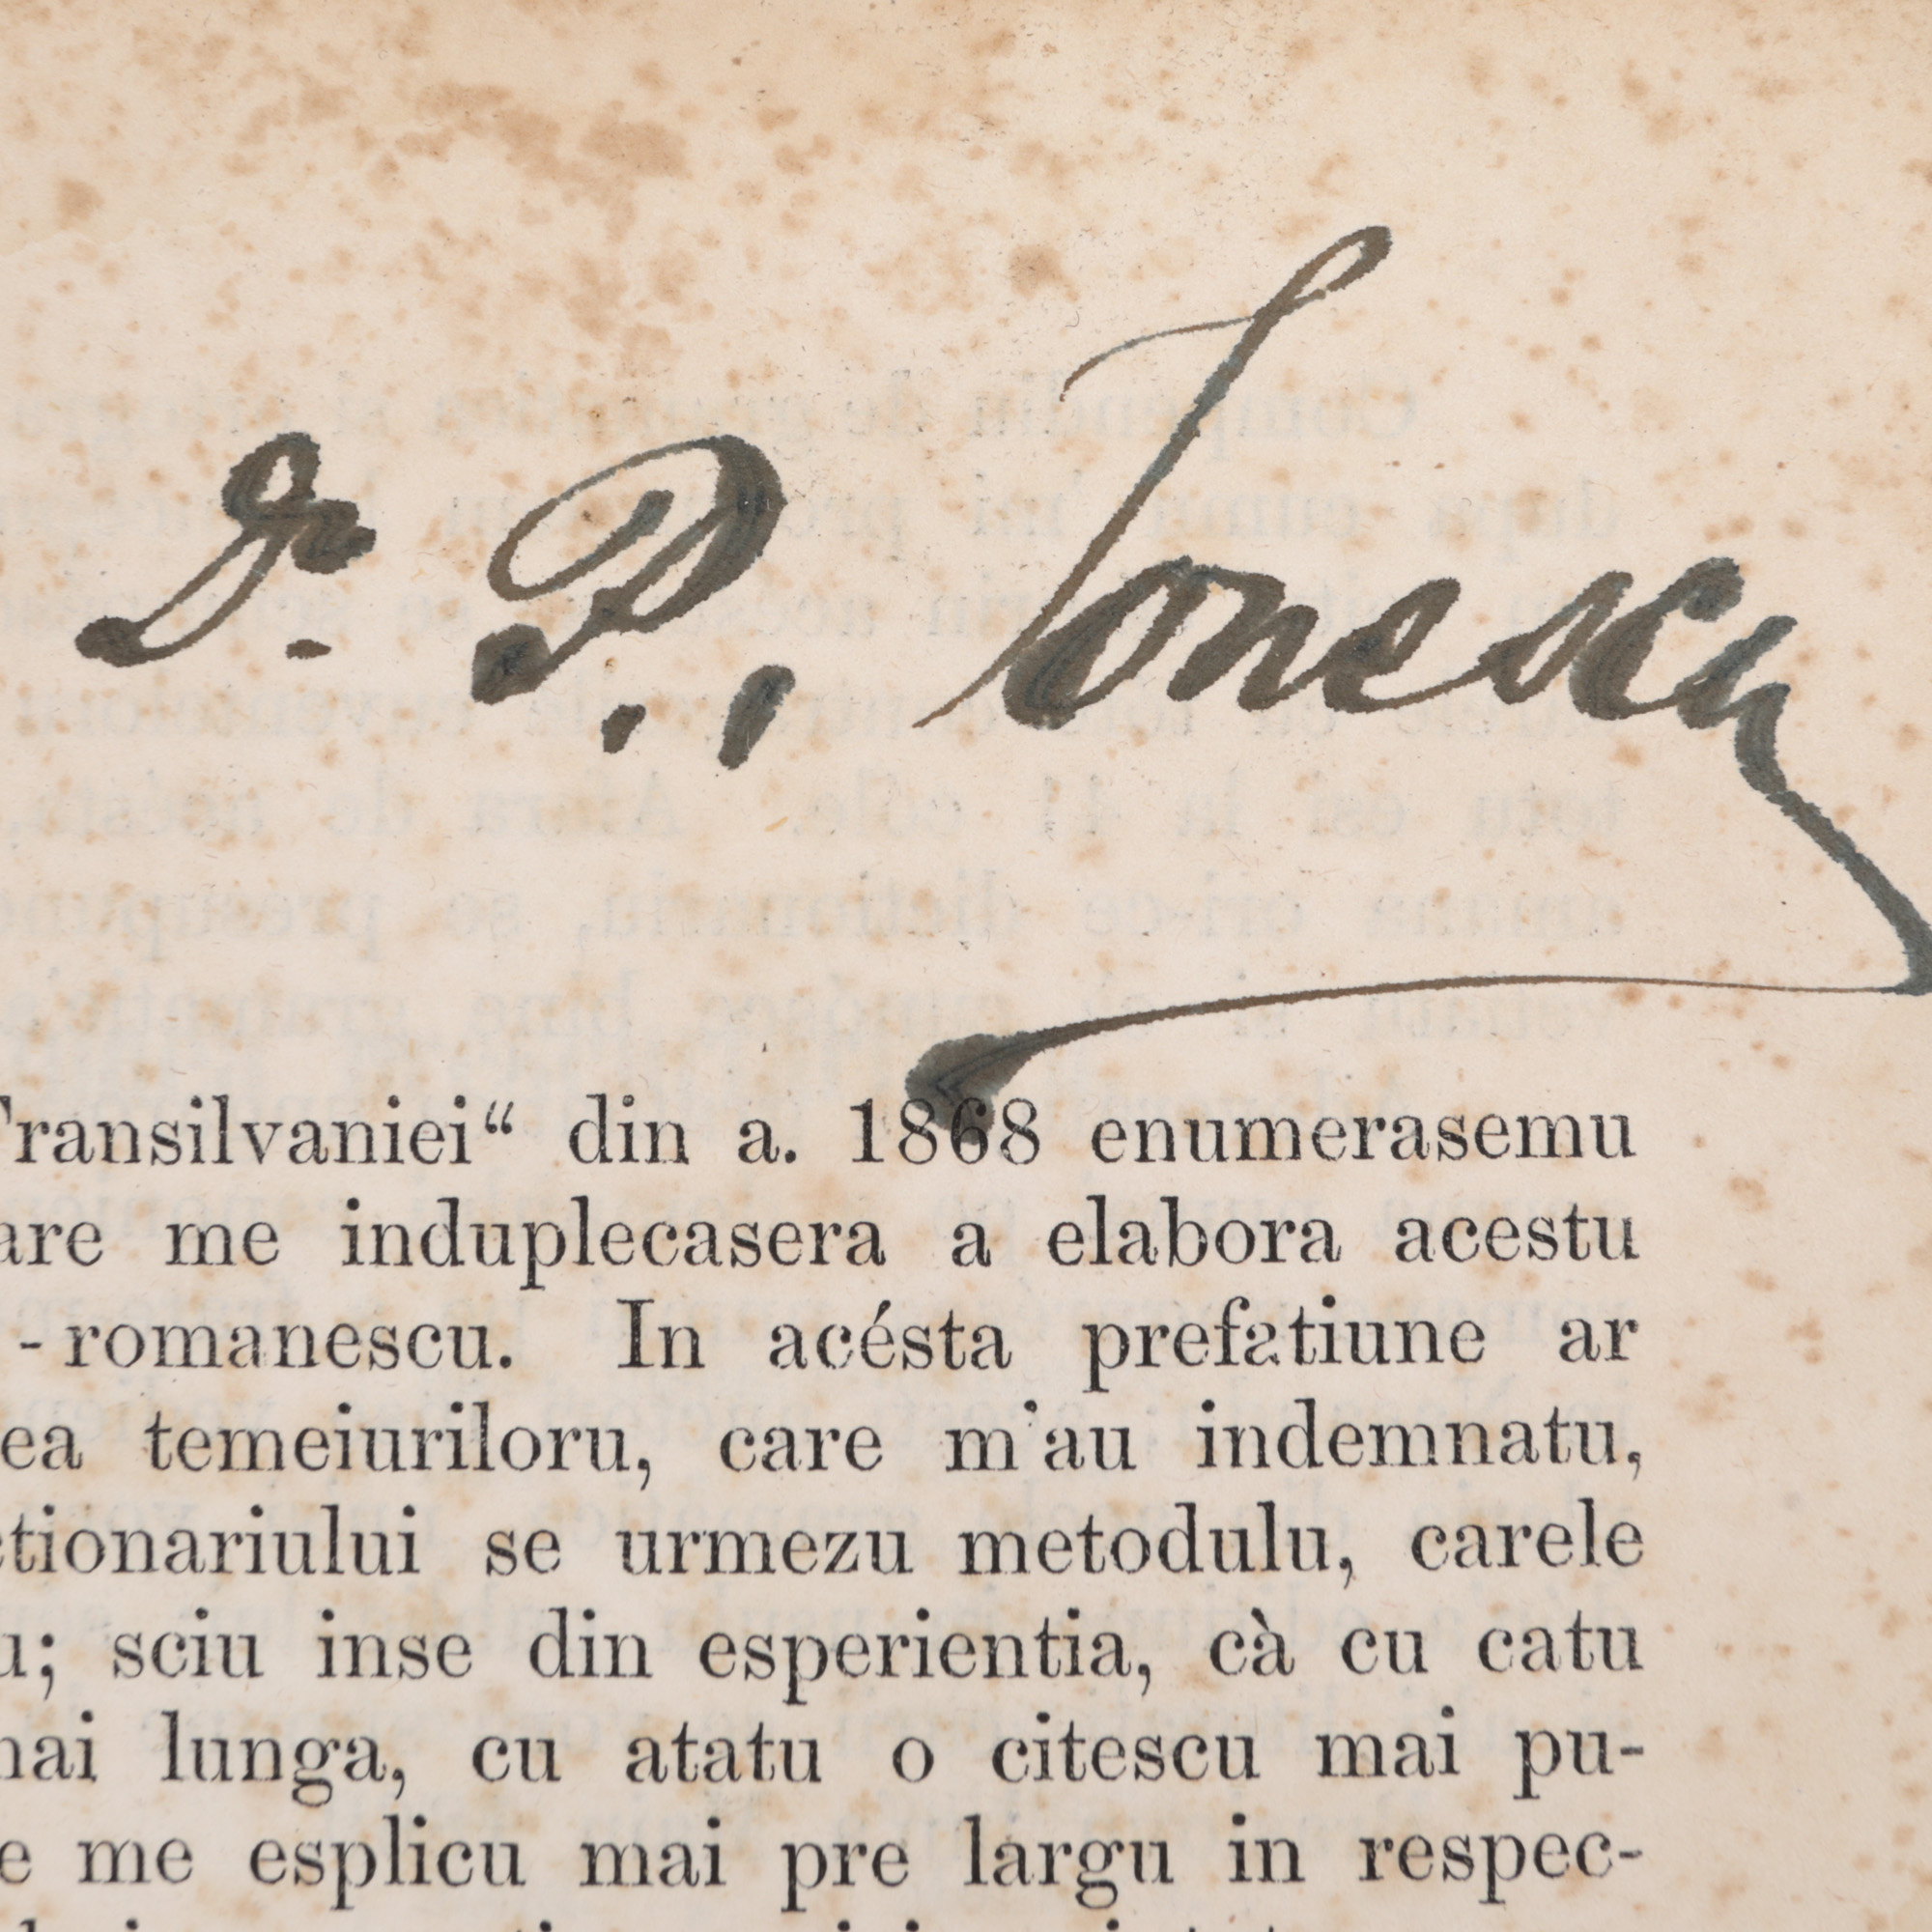 Dr. P. Ionescu
Transilvaniei“ din a. 1868 enumerasemu
are me induplecasera a elabora acestu
-romanescu. In acésta prefatiune ar
ea temeiuriloru, care m'au indemnatu,
ctionariului se urmezu metodulu, carele
u; sciu inse din esperientia, cà cu catu
mai lunga, cu atatu o citescu mai pu-
e me esplicu mai pre largu in respec-